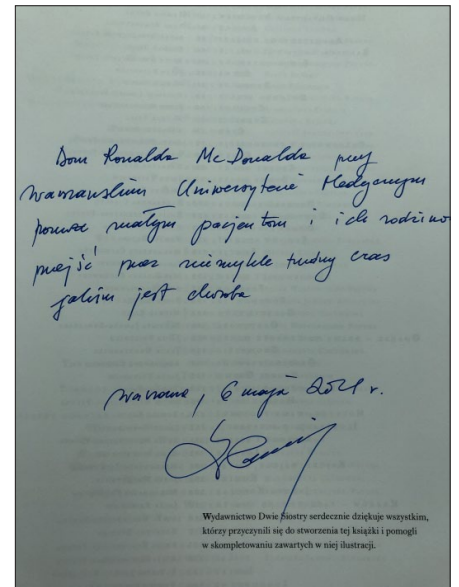 Dom Ronalda McDonalda przy
Warszawskim Uniwersytecie Medycznym
pomaga małym pacjentom i ich rodzinom
przejść przez niezwykle trudny czas
jakim jest choroba
Warszawa, 6 maja 2021 r.
Wydawnictwo Dwie Siostry serdecznie dziękuje wszystkim,
którzy przyczynili się do stworzenia tej książki i pomogli
w skompletowaniu zawartych w niej ilustracji.